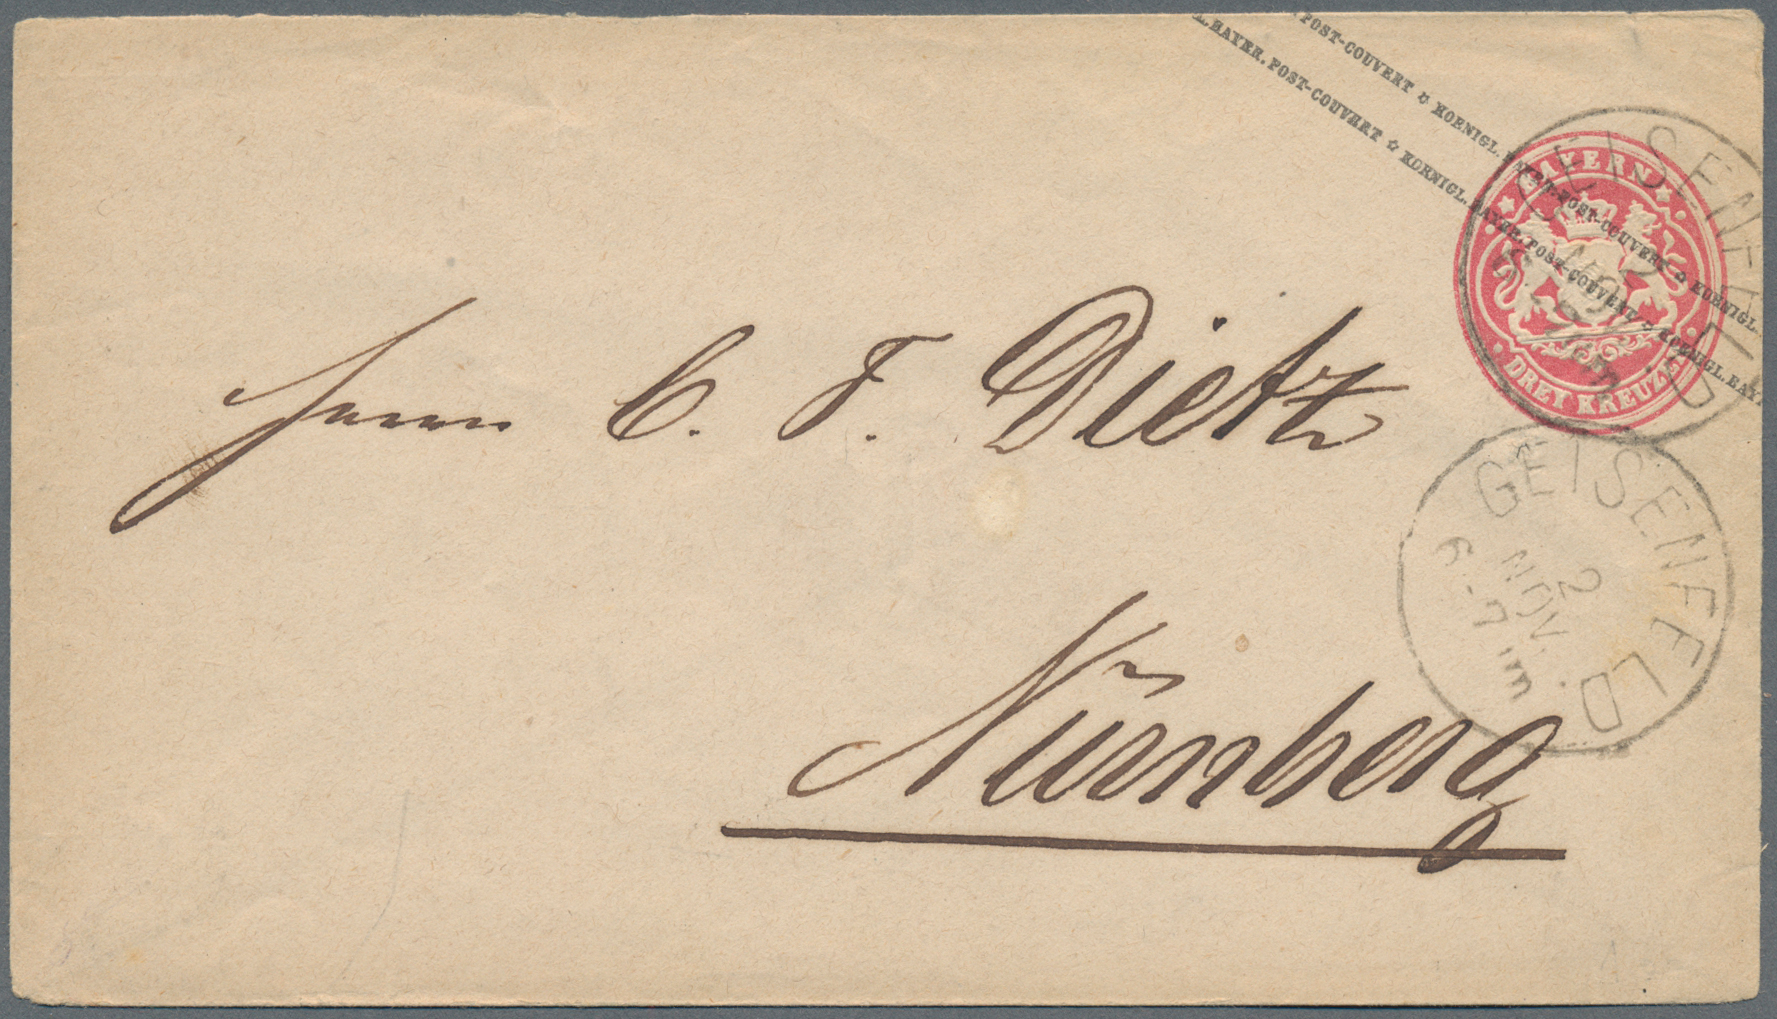 POST-COUVERT ✩ KOENIGL. BAYER. POST-COUVERT ✩ KOENIGL.
L. BAYER. POST-COUVERT ✩ KOENIGL. BAYER. POST-COUVERT ✩ KOENIGL. BAY
BAYERN
DREY KREUZER
GEISENFELD
2
NOV.
Herrn C. F. Dietz
GEISENFELD
2
NOV.
6-7
Nürnberg